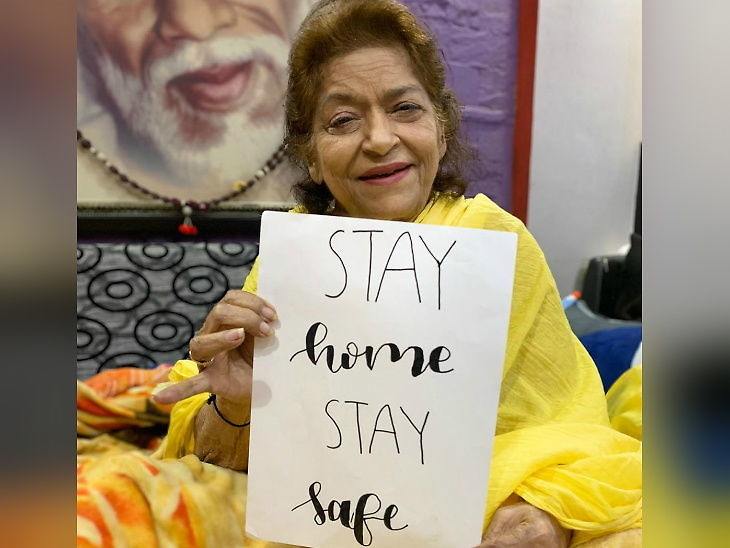 STAY
home
STAY
safe